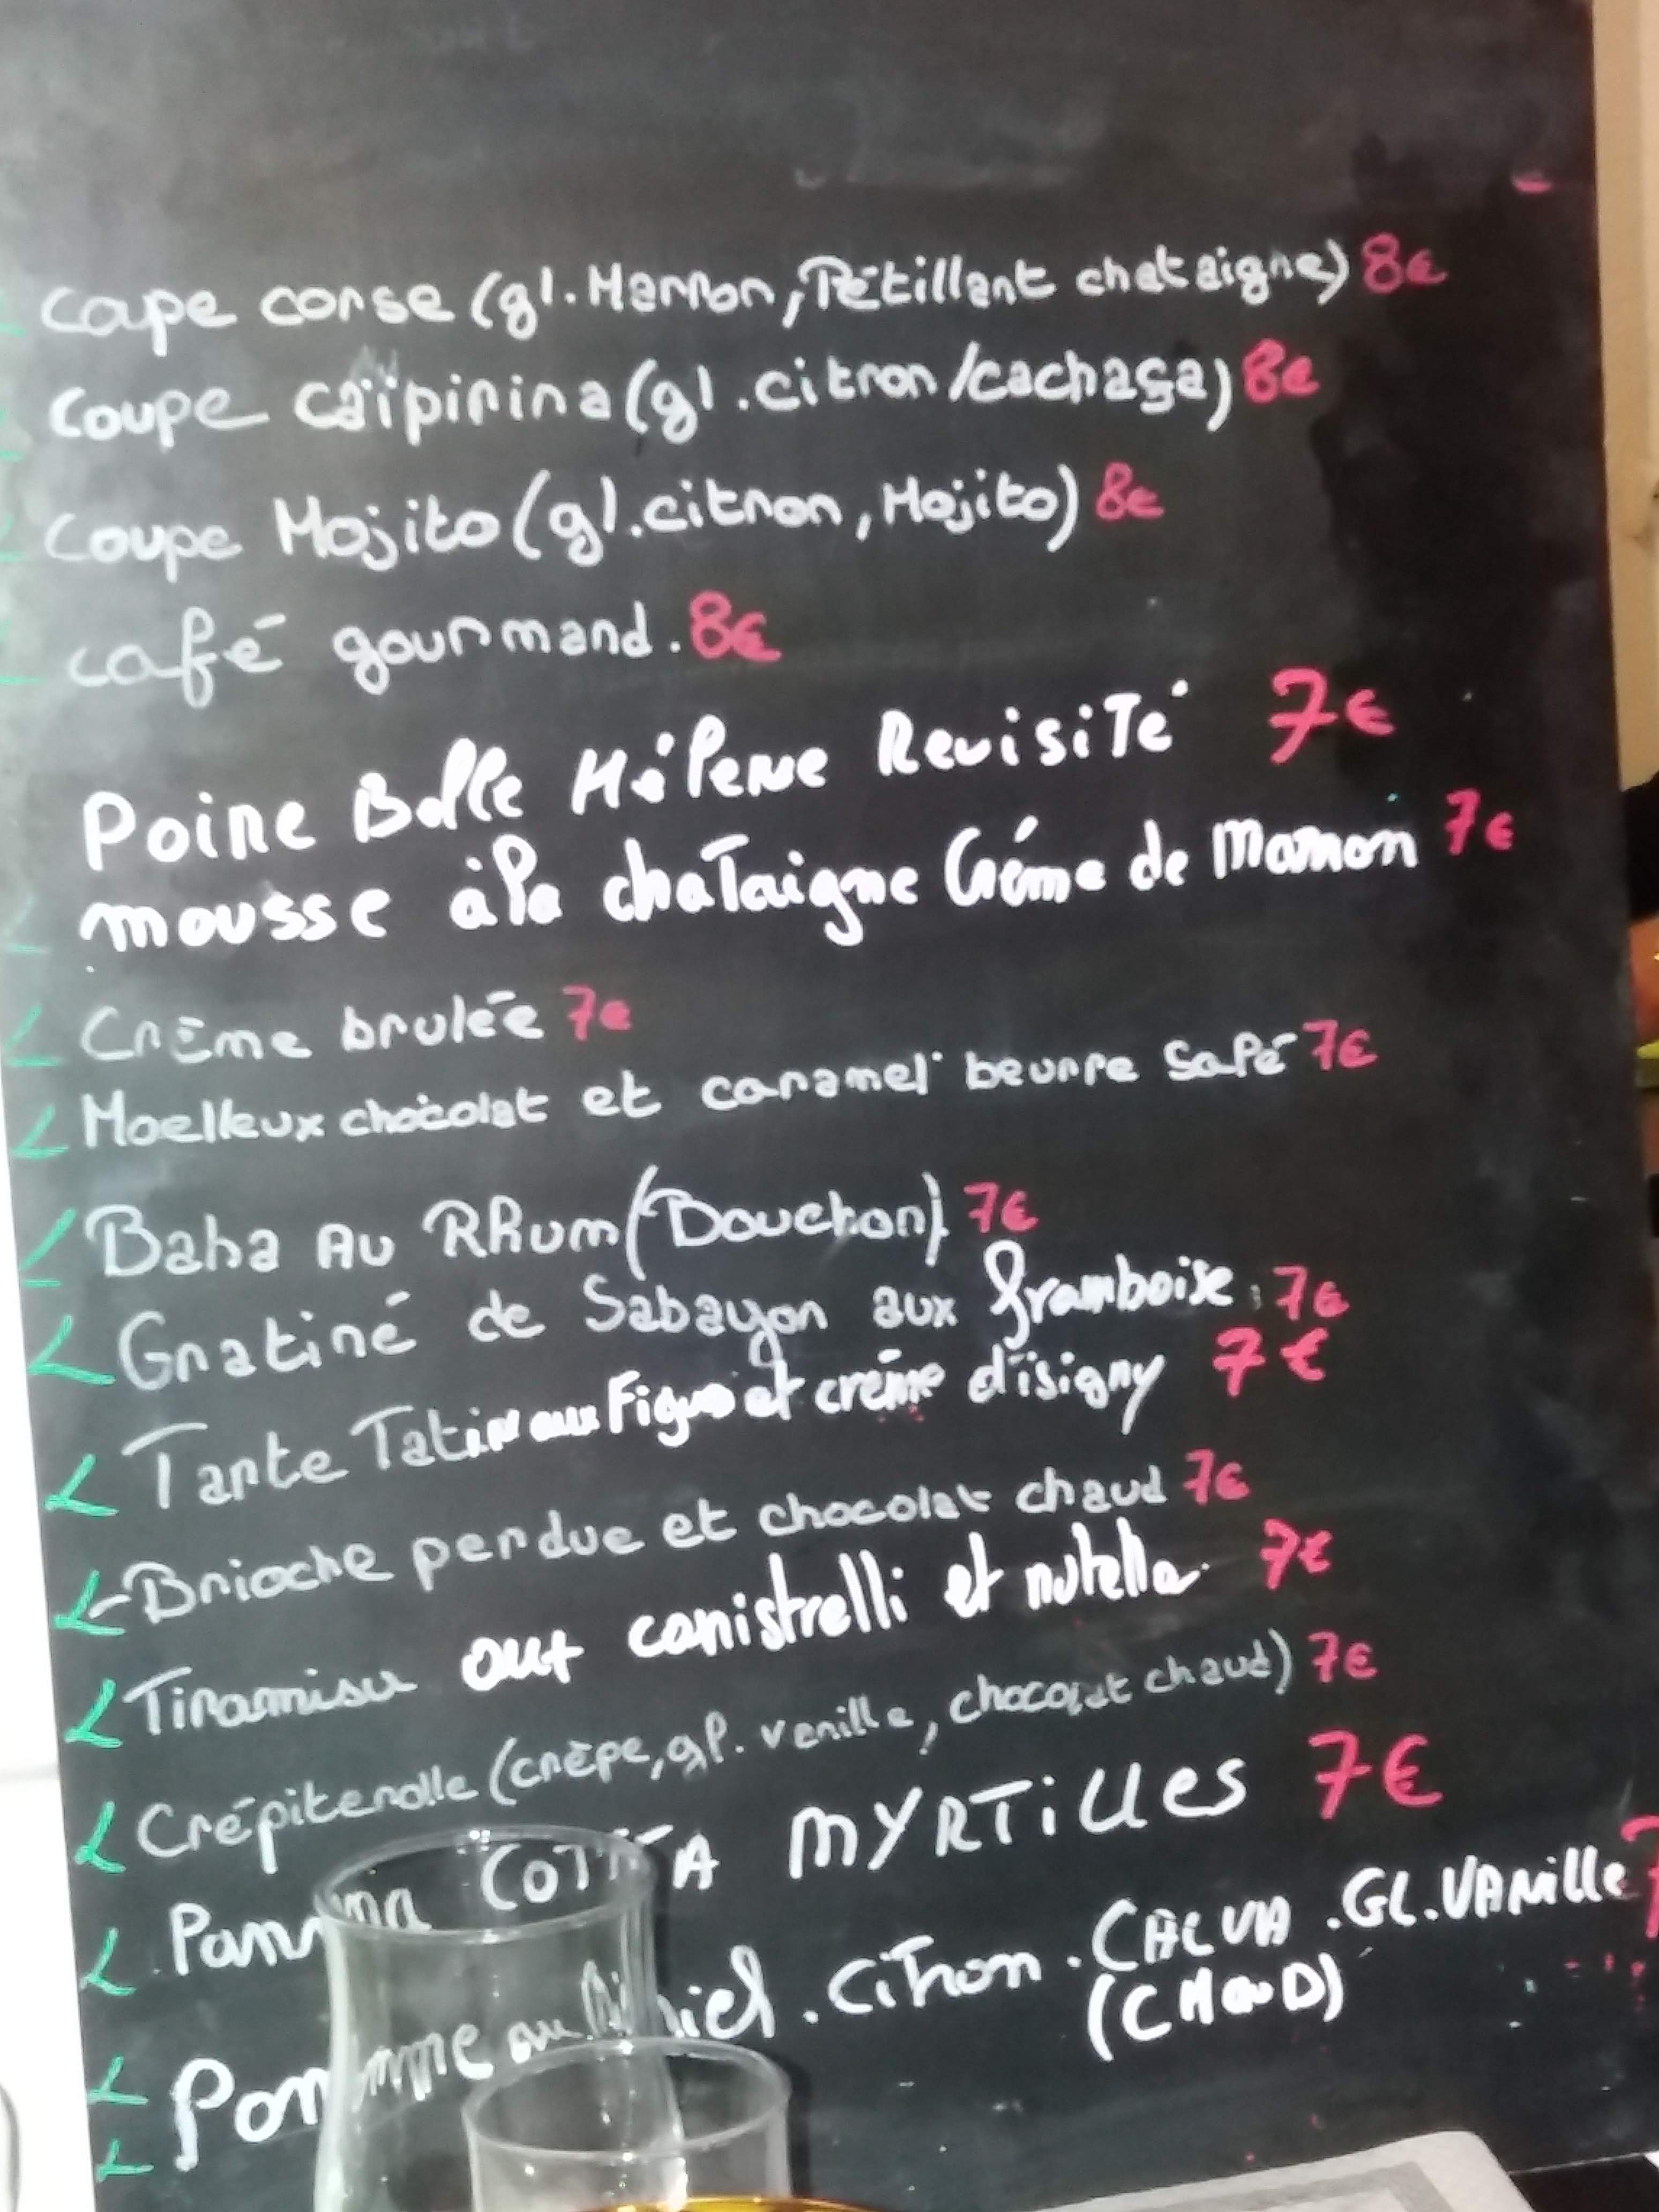 coupe corse (gl. Marron, Pétillant chataigne) 8€
coupe caïpirina (gl. citron/cachaça) 8€
coupe Mojito (gl. citron, Mojito) 8€
café gourmand. 8€
Poire Belle Hélène Revisité 7€
mousse à la chataigne Crème de Marron 7€
Crème brulée 7€
Moelleux chocolat et caramel beurre salé 7€
Baba Au Rhum (Bouchon) 7€
Gratiné de Sabayon aux framboise 7€
Tarte Tatin aux Figues et crème d'isigny 7€
Brioche perdue et chocolat chaud 7€
Tiramisu aux canistrelli et nutella 7€
Crépiterolle (crèpe, gl. vanille, chocolat chaud) 7€
Panna COTTA MYRTILLES 7€
Pomme au Miel. Citron. CALVA. GL. VANille 7
(CHAUD)